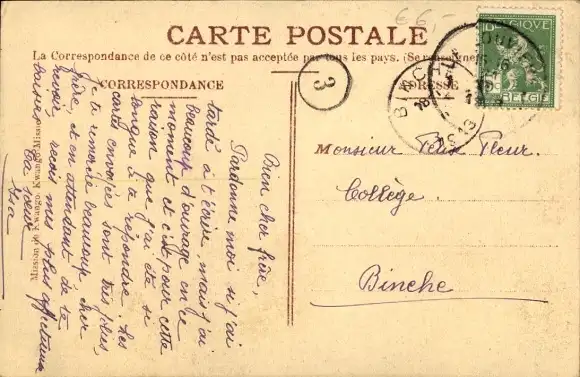 € 6,-
CARTE POSTALE
La Correspondance de ce côté n'est pas acceptée par tous les pays. (Se renseigner)
CORRESPONDANCE
ADRESSE
3
BELGIQUE
BELGIË
BINCHE
Monsieur Félix Fleur.
Collège.
Binche
Bien cher frère,
Pardonne moi si j'ai
tardé à t'écrire, mais j'ai
beaucoup d'ouvrage en ce
moment et c'est pour cette
raison que j'ai été si
longue à te répondre. Les
cartes envoyées sont très jolies
je te remercie beaucoup cher
frère, et en attendant de te
revoir, reçois mes plus affectueux
baisers
Ta sœur
Mission du Kwango. Kwango-Mission